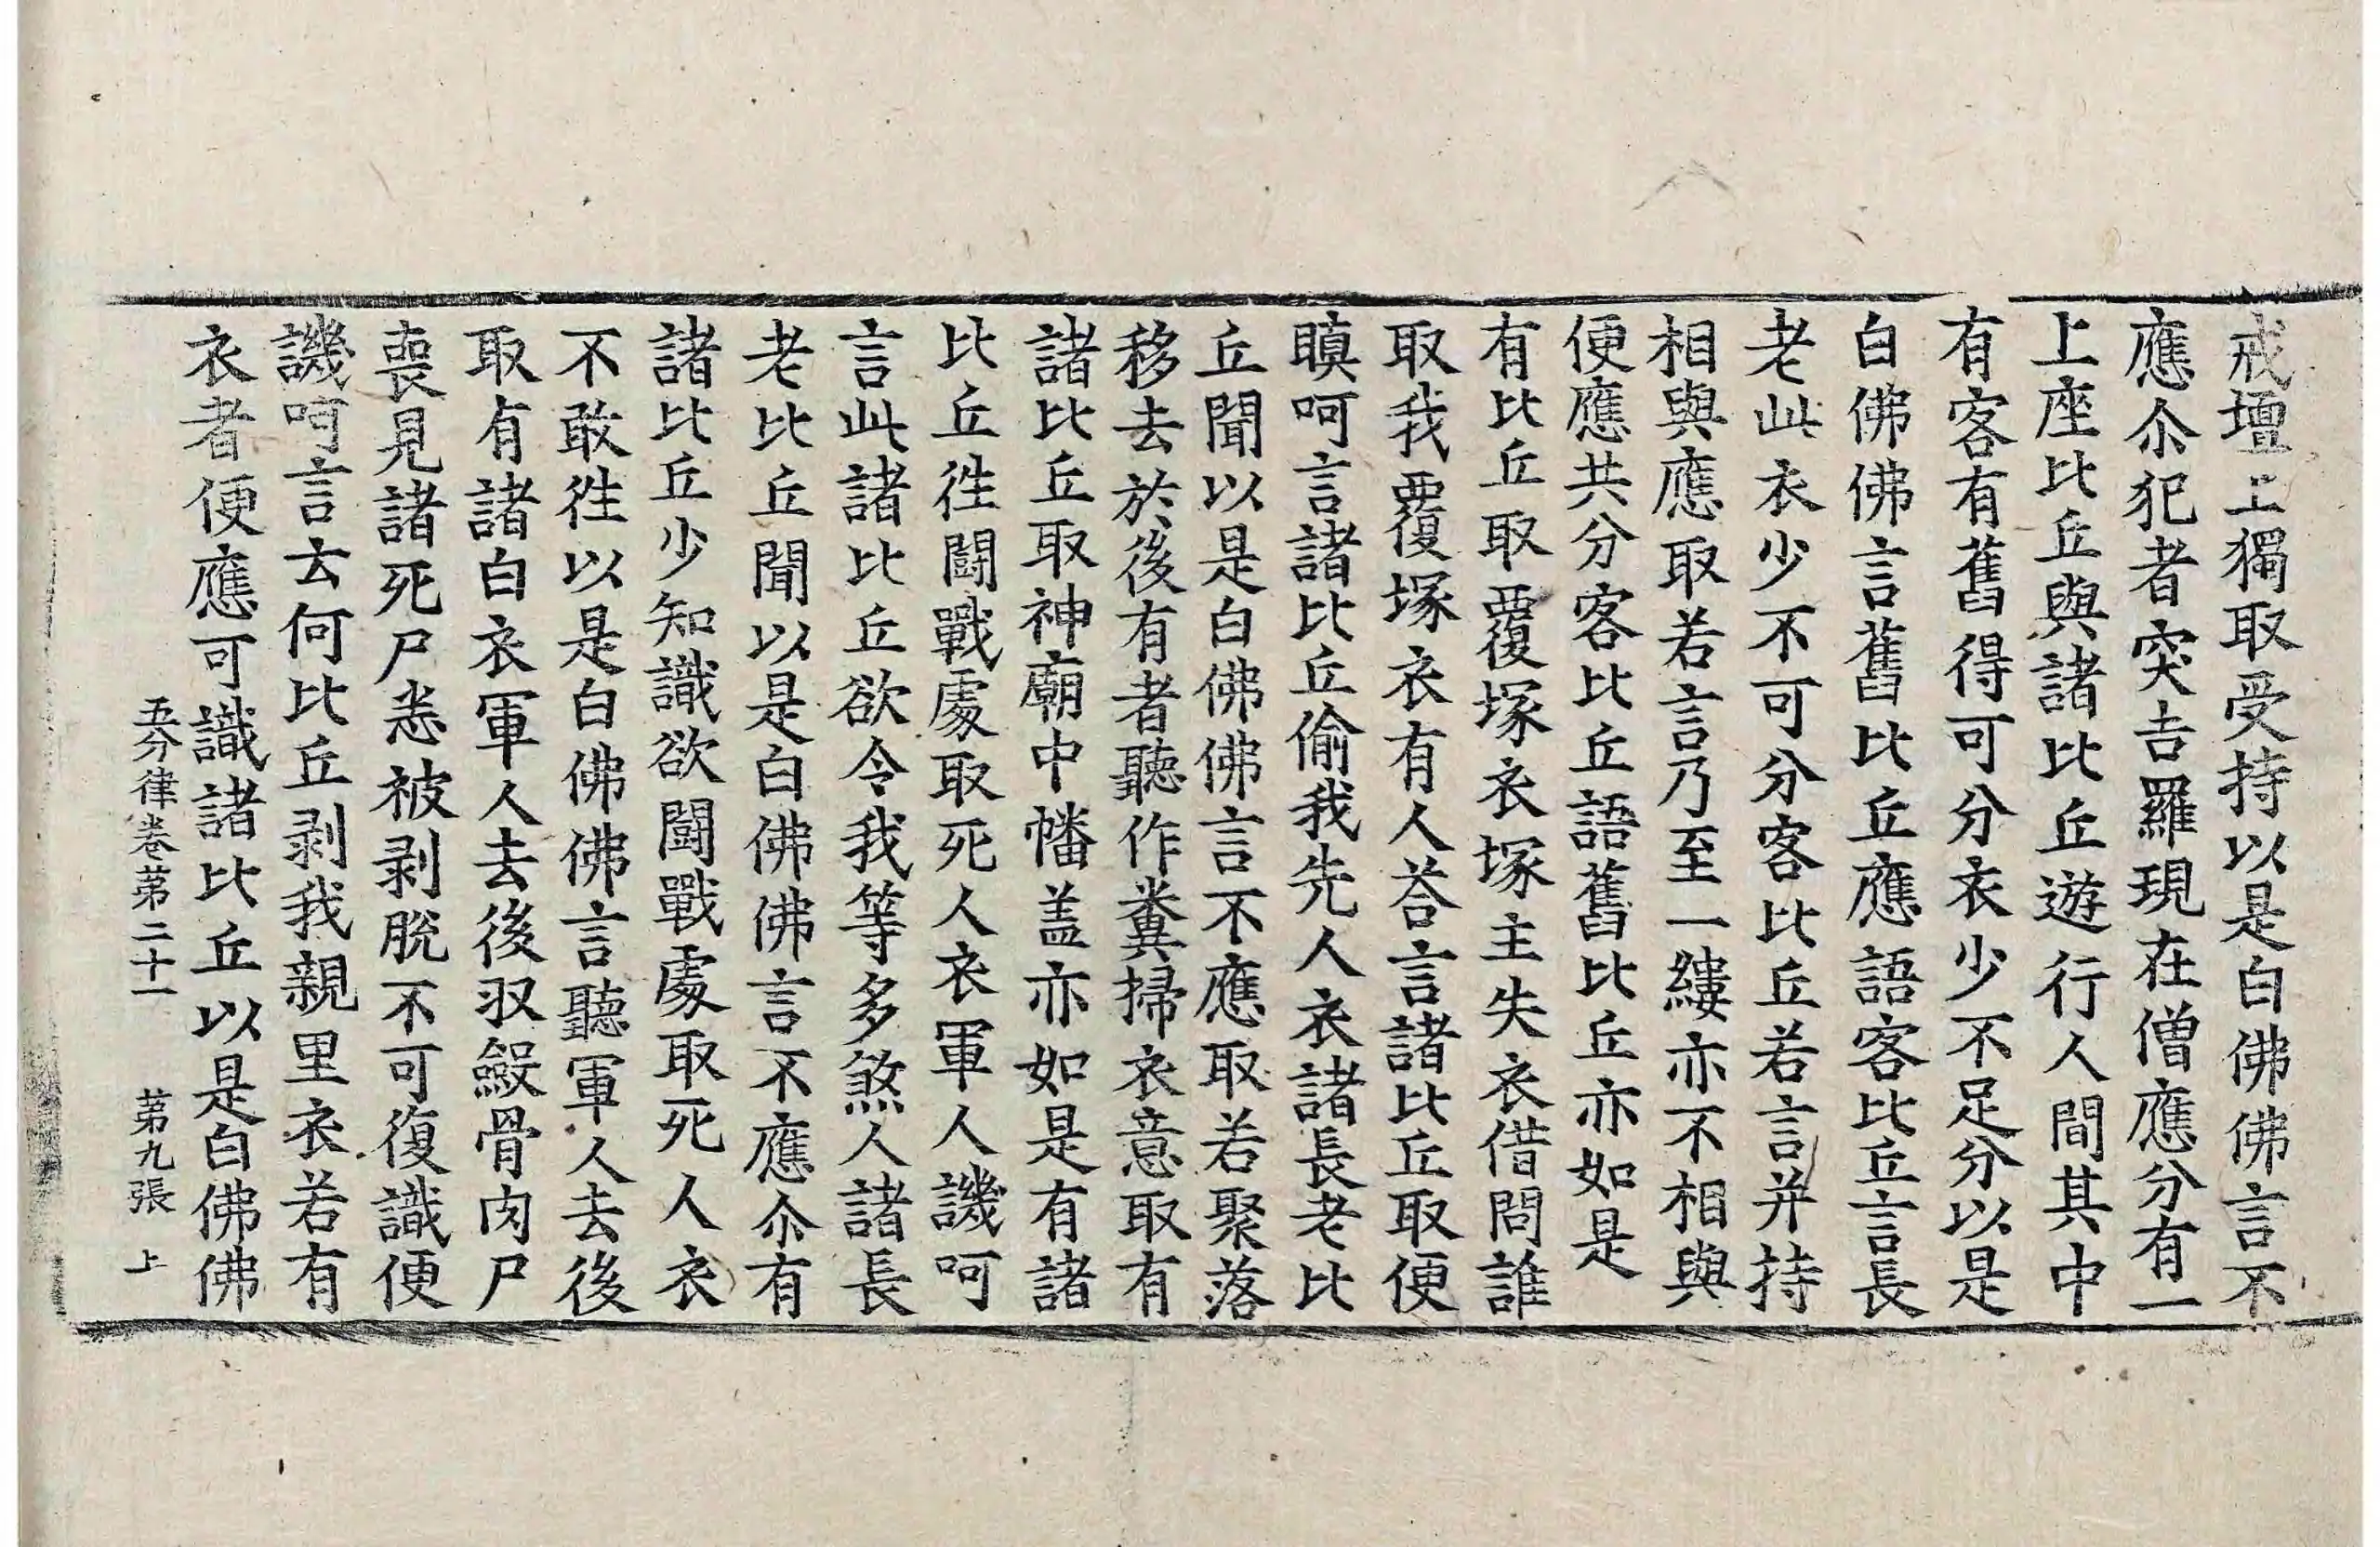 戒壇上獨取受持以是白佛佛言不
應尒犯者突吉羅現在僧應分有一
上座比丘與諸比丘遊行人間其中
有客有舊得可分衣少不足分以是
白佛佛言舊比丘應語客比丘言長
老此衣少不可分客比丘若言并持
相與應取若言乃至一縷亦不相與
便應共分客比丘語舊比丘亦如是
有比丘取覆塚衣塚主失衣借問誰
取我覆塚衣有人荅言諸比丘取便
瞋呵言諸比丘偷我先人衣諸長老比
丘聞以是白佛佛言不應取若聚落
移去於後有者聽作糞掃衣意取有
諸比丘取神廟中幡盖亦如是有諸
比丘徃鬪戰處取死人衣軍人譏呵
言此諸比丘欲令我等多煞人諸長
老比丘聞以是白佛佛言不應尒有
諸比丘少知識欲鬪戰處取死人衣
不敢徃以是白佛佛言聽軍人去後
取有諸白衣軍人去後収㱽骨肉尸
喪見諸死尸悉被剥脫不可復識便
譏呵言去何比丘剥我親里衣若有
衣者便應可識諸比丘以是白佛佛
五分律卷第二十一　第九張　上